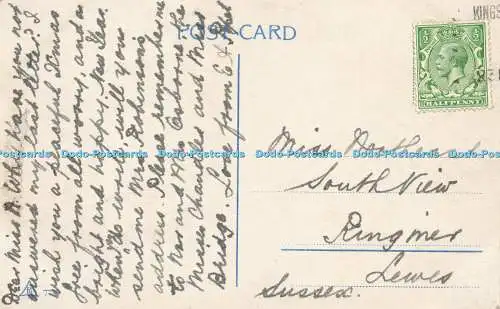 POST CARD
KINGS
HALFPENNY
Dear Miss B. Why have you not
answered my last letter? I
wish you a peaceful Xmas
free from all worry, and a
bright and happy New Year.
When "do write" will you
send me Mrs
address. Please remember me
to Mr and Mrs Osborne the
Misses Charles and Miss
Bridge. Love from E
Miss
South View
Ringmer
Lewes
Sussex.
Dodo-Postcards Dodo-Postcards Dodo-Postcards Dodo-Postcards Dodo-Postcards